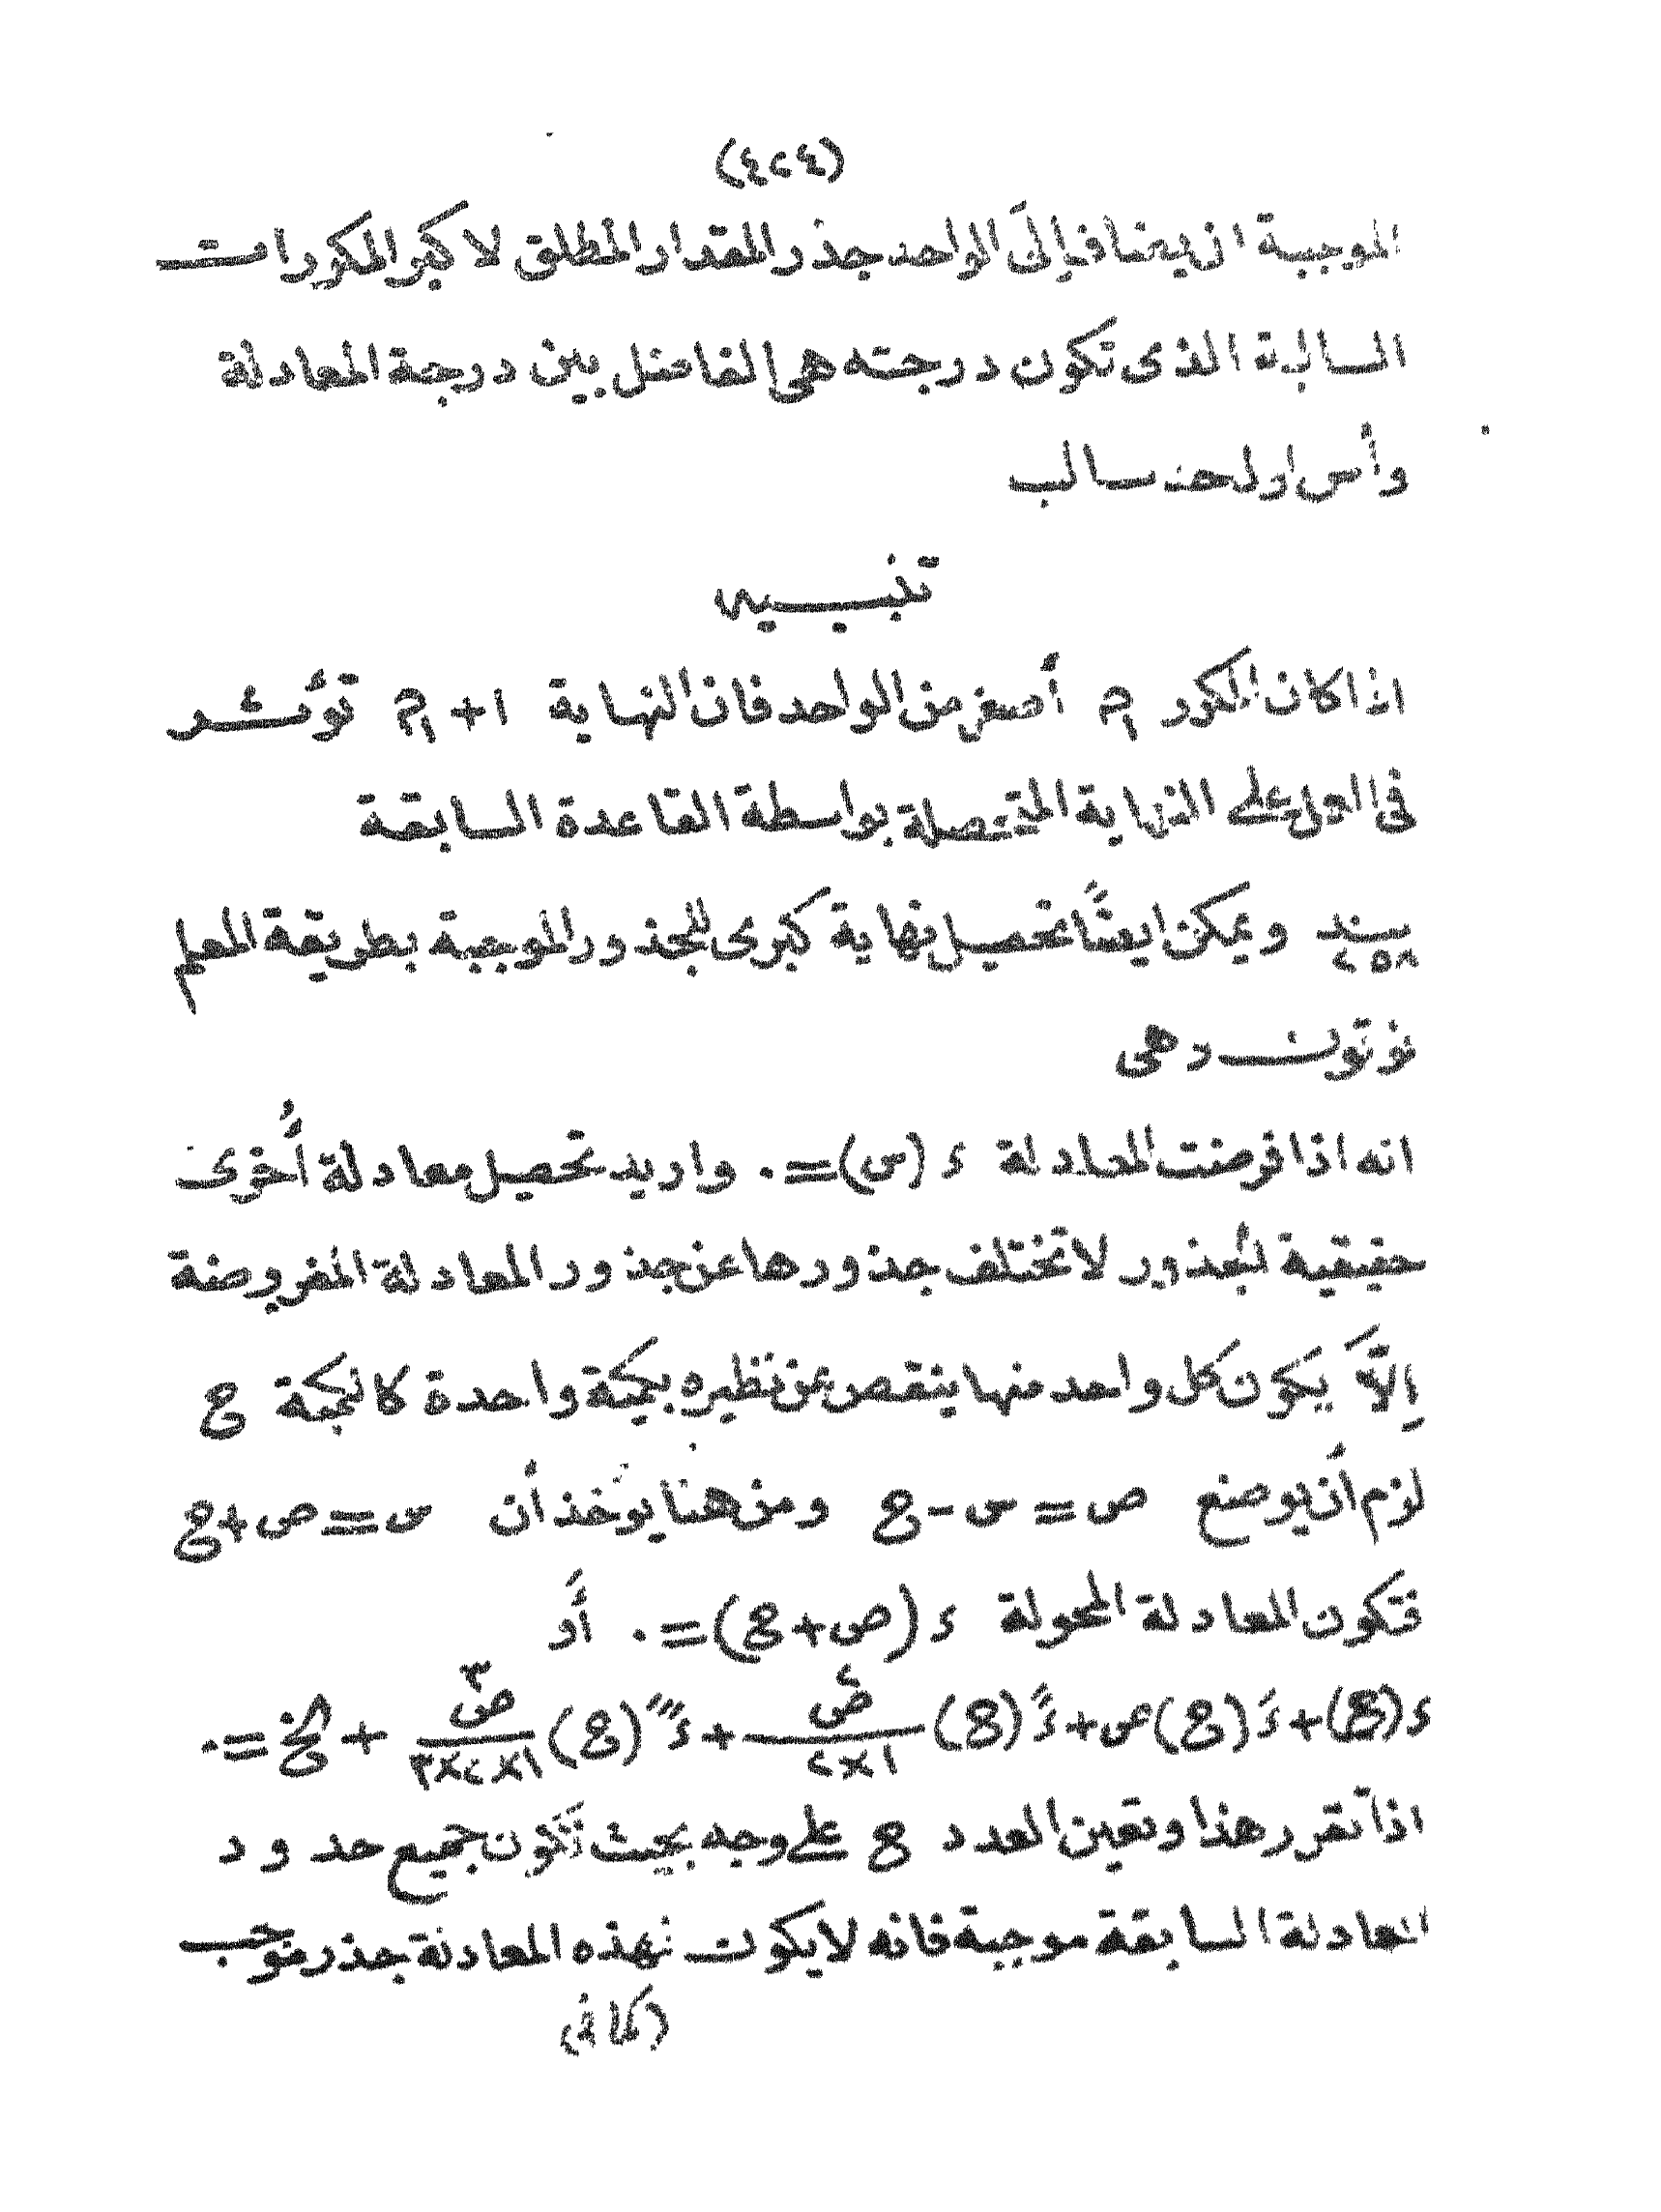 (٤٢٤)
الموجبة ان يضاف إلى الواحد جذر المقدار المطلق لاكبر المكررات
السالبة الذى تكون درجته هى الفاضل بين درجة المعادلة
وأس اول حد سالب
تنبيه
اذا كان المكرر م أصغر من الواحد فان النهاية ١+م تؤثر
فى العمل على النهاية المتحصلة بواسطة القاعدة السابقة
بند ٢٥٨ ويمكن ايضًا تحصيل نهاية كبرى للجذور الموجبة بطريقة المعلم
نوتون وهى
انه اذا فرضت المعادلة د (س)=٠ واريد تحصيل معادلة أُخرى
حقيقية الجذور لا تختلف جذورها عن جذور المعادلة المفروضة
إلاَّ بكون كل واحد منها ينقص عن نظيره بكمية واحدة كالكمية ع
لزم أن يوضع ص = س - ع ومن هنا يوخذ أن س = ص+ع
فتكون المعادلة المحولة د (ص+ع)=٠ أو
د(ع)+دَ(ع)ص+دً(ع) ص٢/١×٢ + د‴(ع) ص٣/١×٢×٣ + الخ = ٠
اذا تقرر هذا وتعين العدد ع على وجه بحيث تكون جميع حدود
المعادلة السابقة موجبة فانه لا يكون لهذه المعادلة جذر موجب